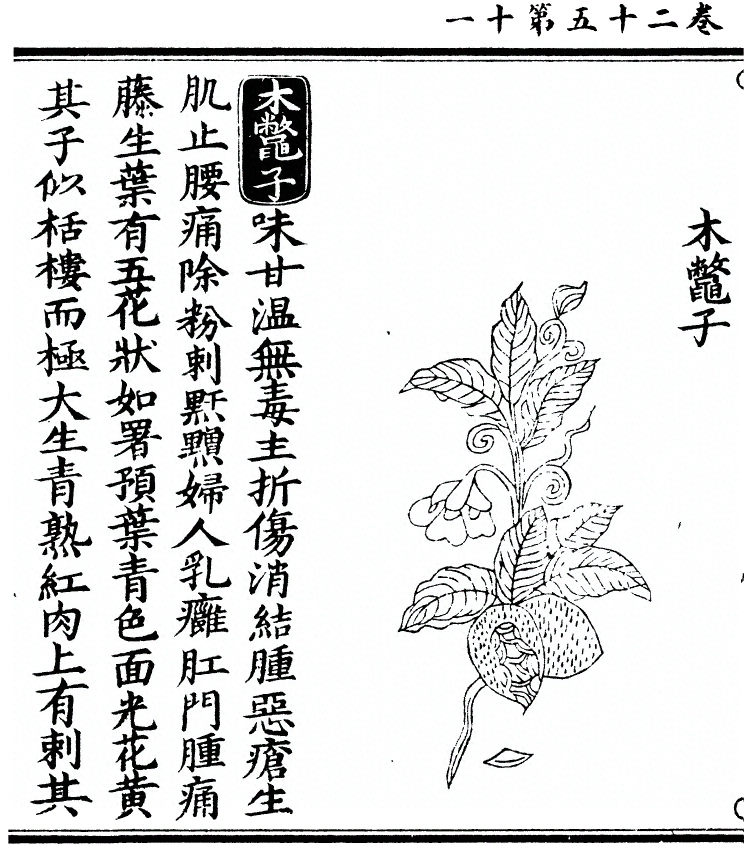 卷二十五第十一
木鼈子
木鼈子味甘溫無毒主折傷消結腫惡瘡生
肌止腰痛除粉刺䵟䵳婦人乳癰肛門腫痛
藤生葉有五花狀如署預葉青色面光花黄
其子似栝樓而極大生青熟紅肉上有刺其